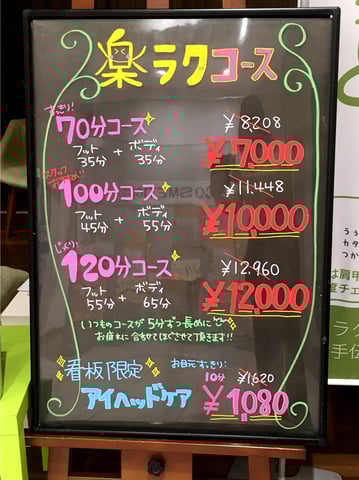 楽ラクコース
すっきり!
70分コース
¥8,208
フット 35分 + ボディ 35分
¥7,000
スタッフおすすめ!!
100分コース
¥11,448
フット 45分 + ボディ 55分
¥10,000
じっくり!
120分コース
¥12,960
フット 55分 + ボディ 65分
¥12,000
いつものコースが5分ずつ長めに
お疲れに合わせてほぐさせて頂きます!!
看板限定
お目元すっきり!
アイヘッドケア
10分
¥1,620
¥1,080